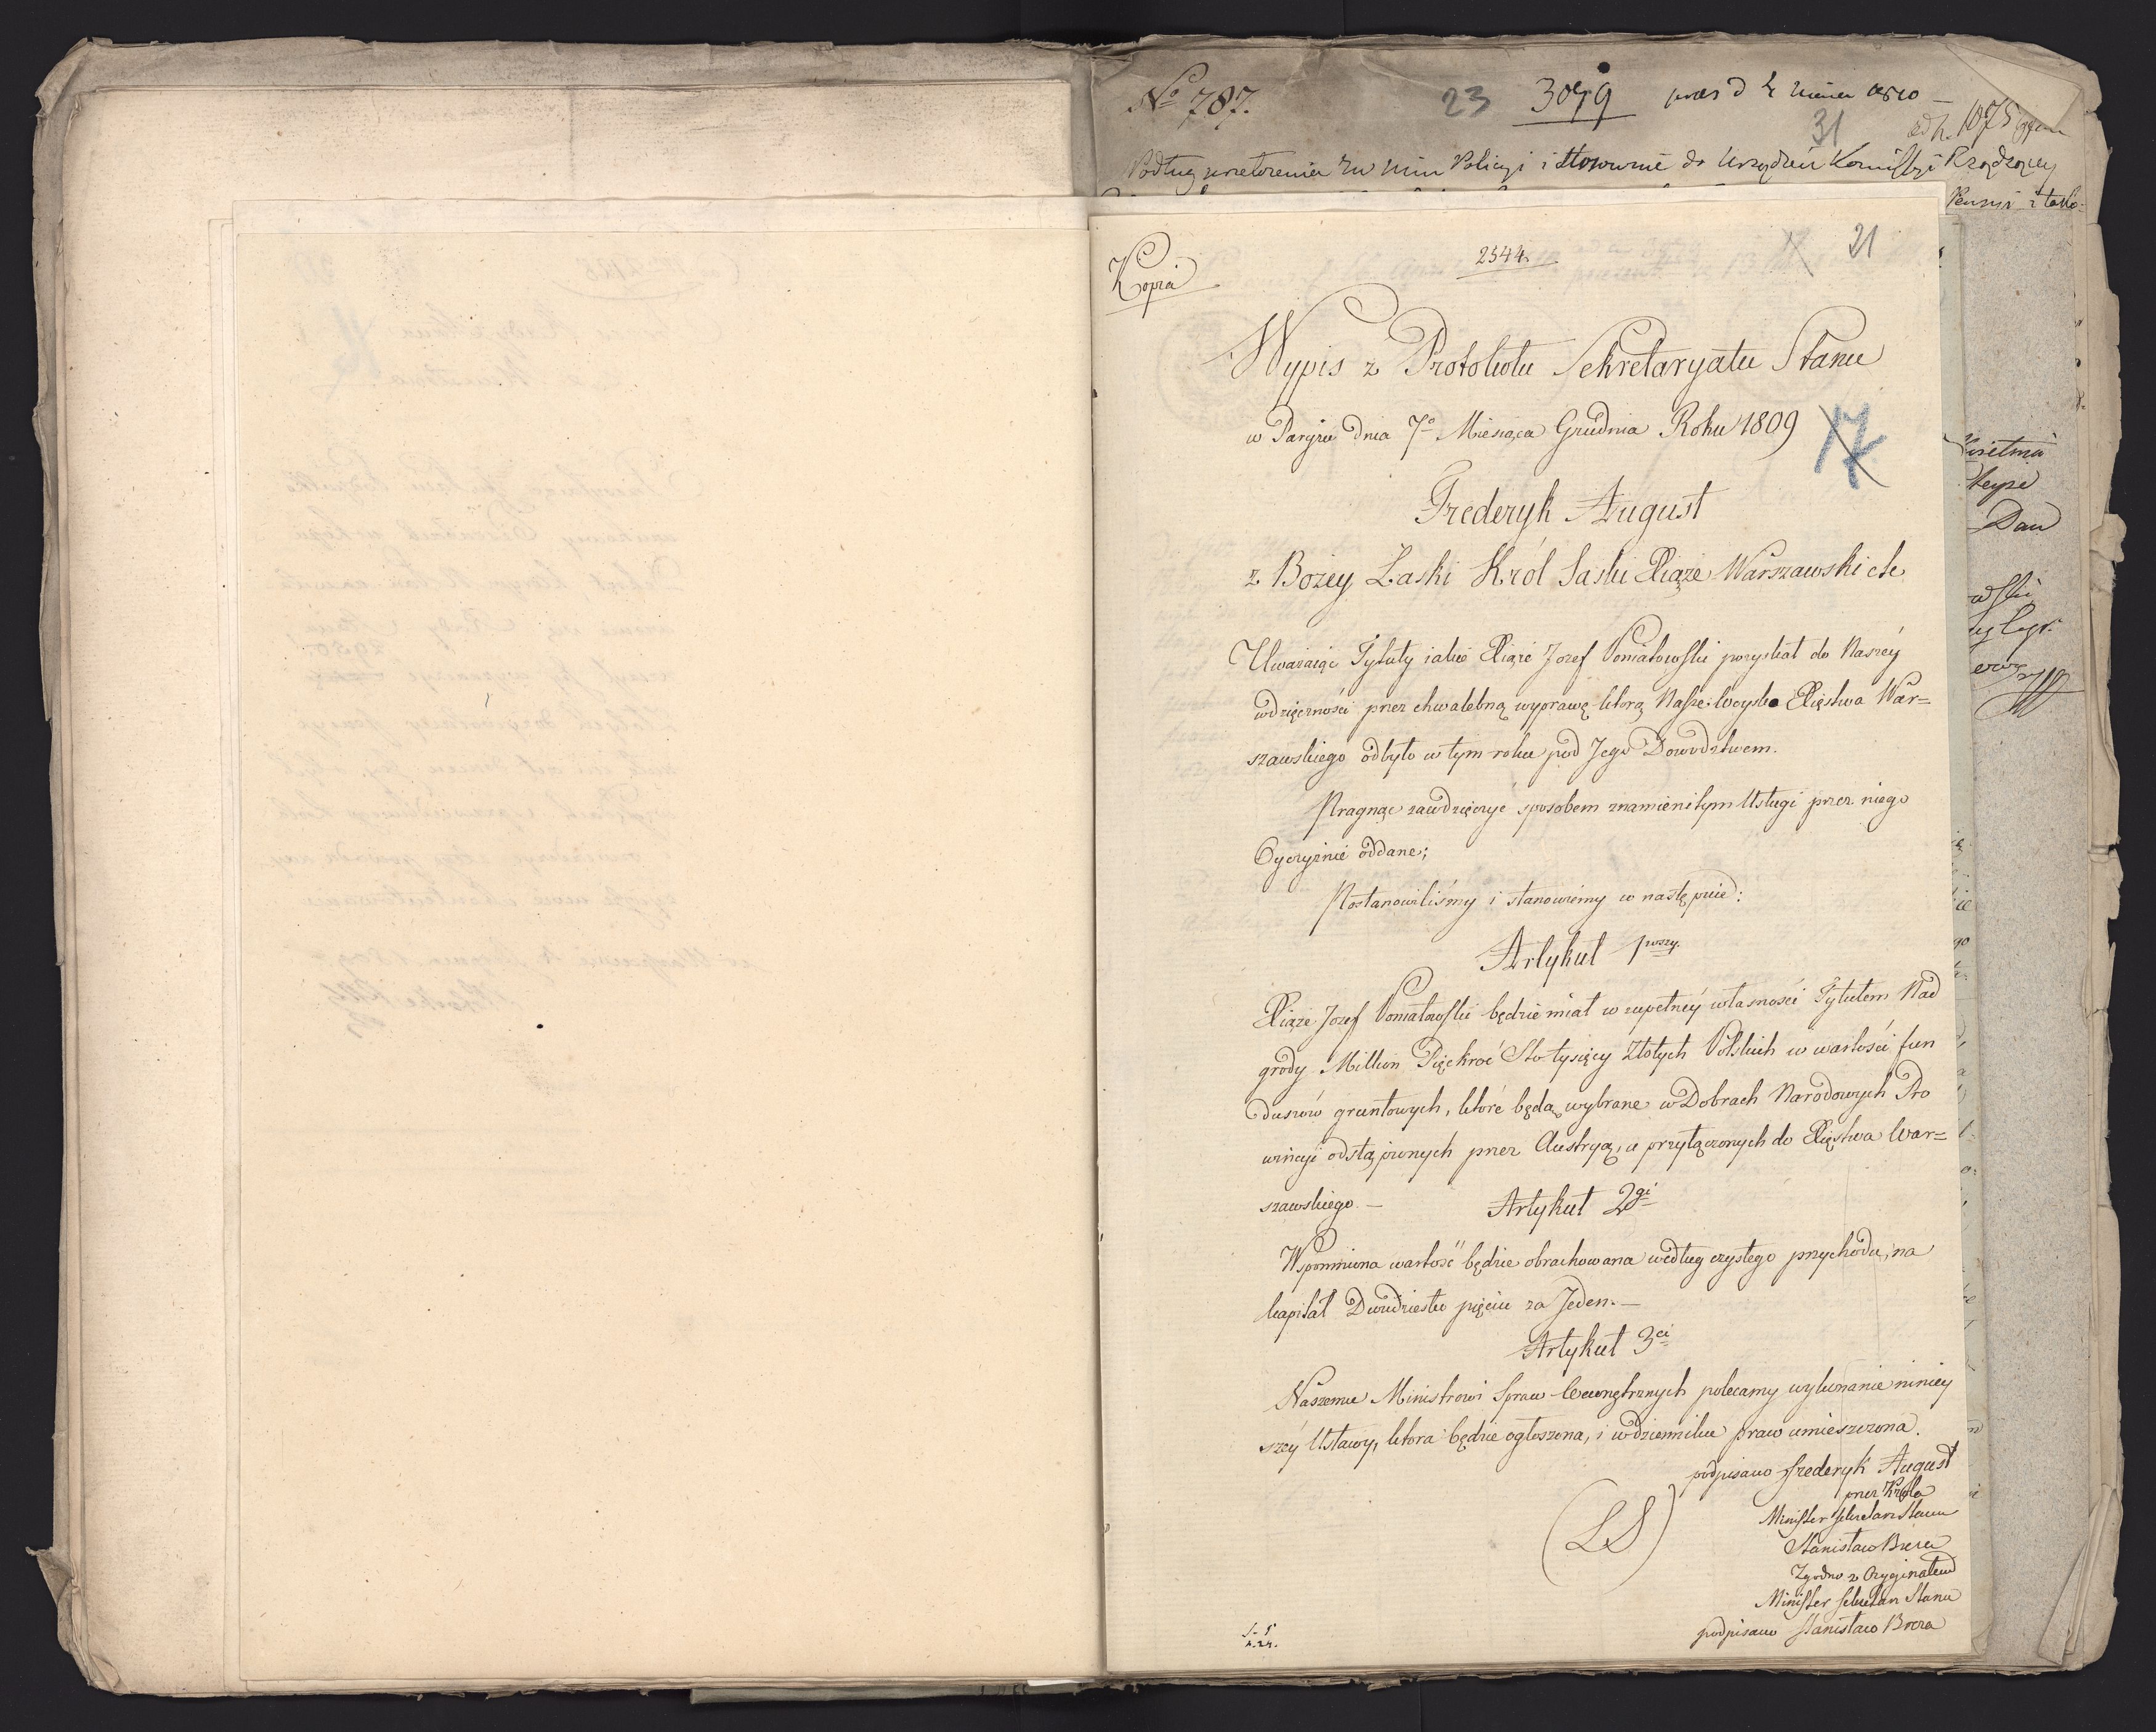 No 787.
23 3079
31
1075
Podług Policyi i stosownie do Urządzeń Kommissyi Rządzącey
Pensyi i
Kopia
2544.
21
Wypis z Protokułu Sekretaryatu Stanu
w Paryżu dnia 7o Miesiąca Grudnia Roku 1809
17
Frederyk August
z Bożey Łaski Król Saski Xiąże Warszawski etc
Uważaiąc Tytuły iakie Xiąże Jozef Poniatowski pozyskał do Naszéy
wdzięczności przez chwalebną wyprawę którą Nasze woysko Xięstwa War=
szawskiego odbyło w tym roku pod Jego Dowodztwem.
Pragnąc zawdzięczyć sposobem znamienitym Usługi przez niego
Oyczyznie oddane;
Postanowiliśmy i stanowiemy w następuie:
Artykuł 1wszy.
Xiąże Jozef Poniatowski będzie miał w zupełnéy własności Tytułem Nad
grody Million Pięckroć Sto tysięcy Złotych Polskich w wartości fun
duszów gruntowych, które będą wybrane w Dobrach Narodowych Pro
wincyi odstąpionych przez Austryą, a przyłączonych do Xięstwa War=
szawskiego. —
Artykuł 2gi
Wspomniona wartość będzie obrachowana według czystego przychodu, na
kapitał Dwudziestu pięciu za Jeden. —
Artykuł 3ci
Naszemu Ministrowi Spraw Wewnętrznych polecamy wykonanie niniey
széy Ustawy, która będzie ogłoszona, i w dzienniku praw umieszczona.
podpisano Frederyk August
przez Króla
Minister Sekretarz Stanu
Stanisław Breza
(LS)
Zgodno z Oryginałem
Minister Sekretarz Stanu
podpisano Stanisław Breza